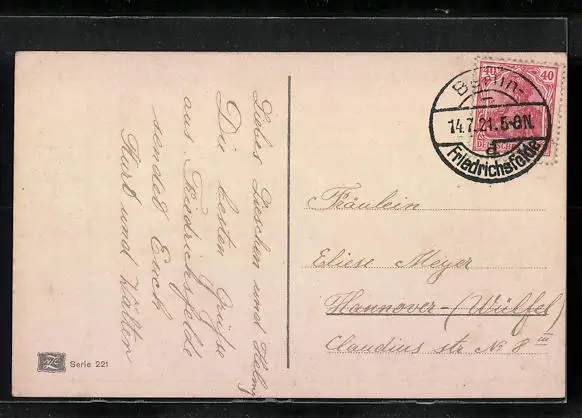 Liebes Lieschen und Helmy
Die besten Grüße
aus Friedrichsfelde
sendet Euch
Kurt und Walter
Serie 221
40 40
Berlin-
14.7.21. 5-6N.
d
Friedrichsfelde
Fräulein
Eliese Meyer
Hannover-(Wülfel)
Claudius str № 8 III